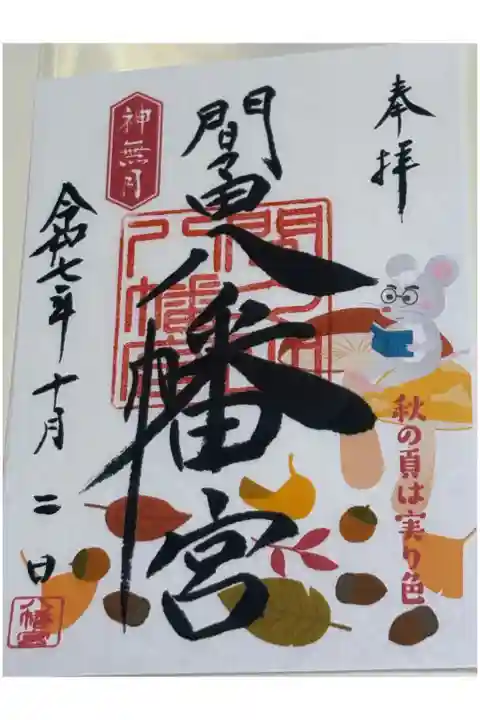 奉拝
間々田八幡宮
神無月
令和七年十月二日
秋の頁は実り色